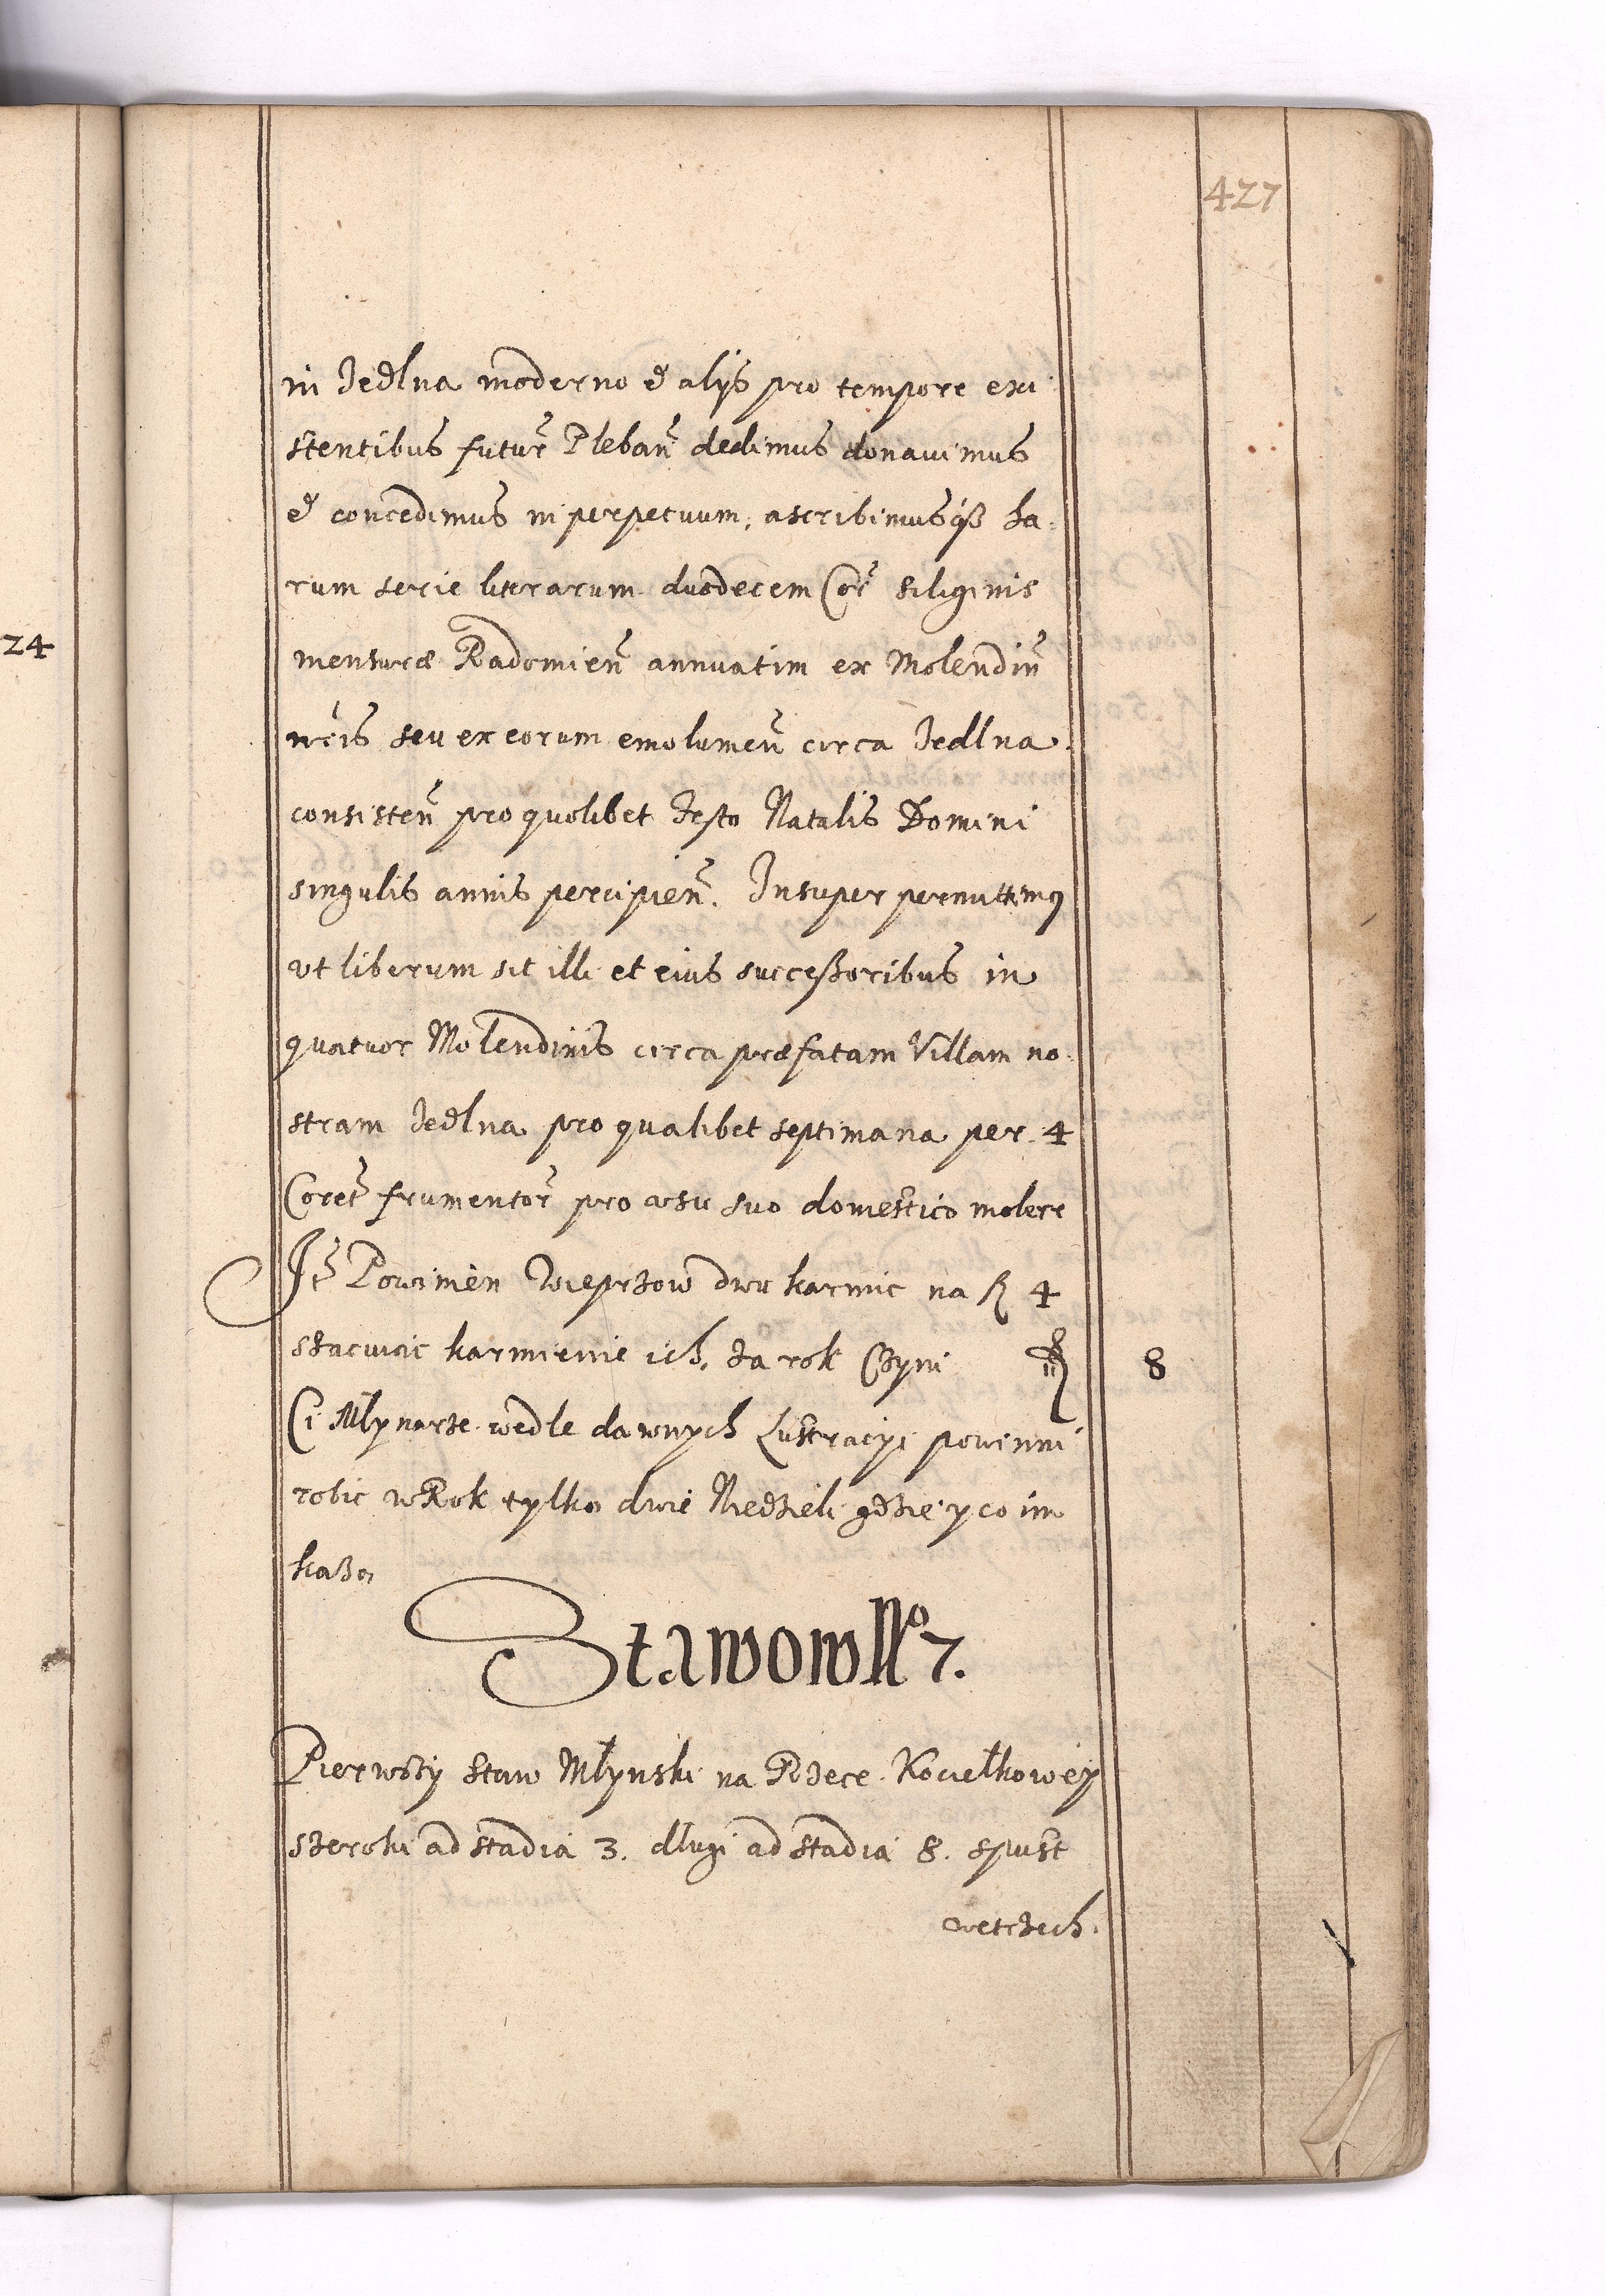 427
24
in Jedlna moderno et alijs pro tempore exi
stentibus futur Pleban dedimus donauimus
et concedimus in perpetuum, ascribimusq ha
rum serie literarum duodecem Cor siliginis
mensuræ Radomien annuatim ex Molendin
nris seu ex eorum emolumen circa Jedlna
consisten pro quolibet Festo Natalis Domini
singulis annis percipien. Insuper permittimus
vt liberum sit illi et eius succeßoribus in
quatuor Molendinis circa præfatam Villam no
stram Jedlna pro qualibet septimana per 4
Coret frumentor pro vsu suo domestico molere
It Powinien Wieprzow dwu karmic na R 4
szacuiąc karmienie ich za rok Czyni 8 8
Ci Mlynarze wedle dawnych Lustracyi powinni
robic w Rok tylko dwie Niedzieli gdzie y co im
kaßą
Stawow No 7.
Pierwszy Staw Młynski na Rzece Kociełkowey
szeroki ad stadia 3. dlugi ad stadia 8. spust
wetrzech.